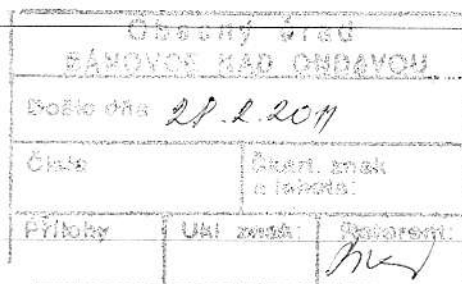 Obecný úrad
BÁNOVCE NAD ONDAVOU
Došlo dňa 28.2.2011
Číslo
Škart. znak
a lehota:
Prílohy
Ukl. znak:
Referent: